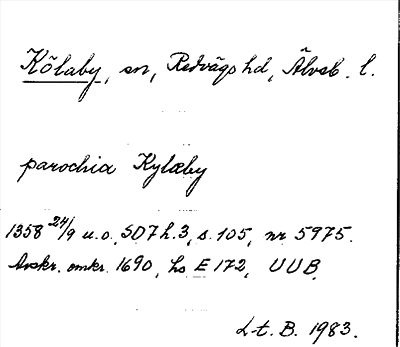 Kölaby, sn, Redvägs hd, Älvsb. l.
parochia Kylæby
1358 24/9 u.o., SD 7 h.3, s. 105, nr 5975.
Avskr. omkr. 1690, hs E 172, UUB.
L-t. B. 1983.